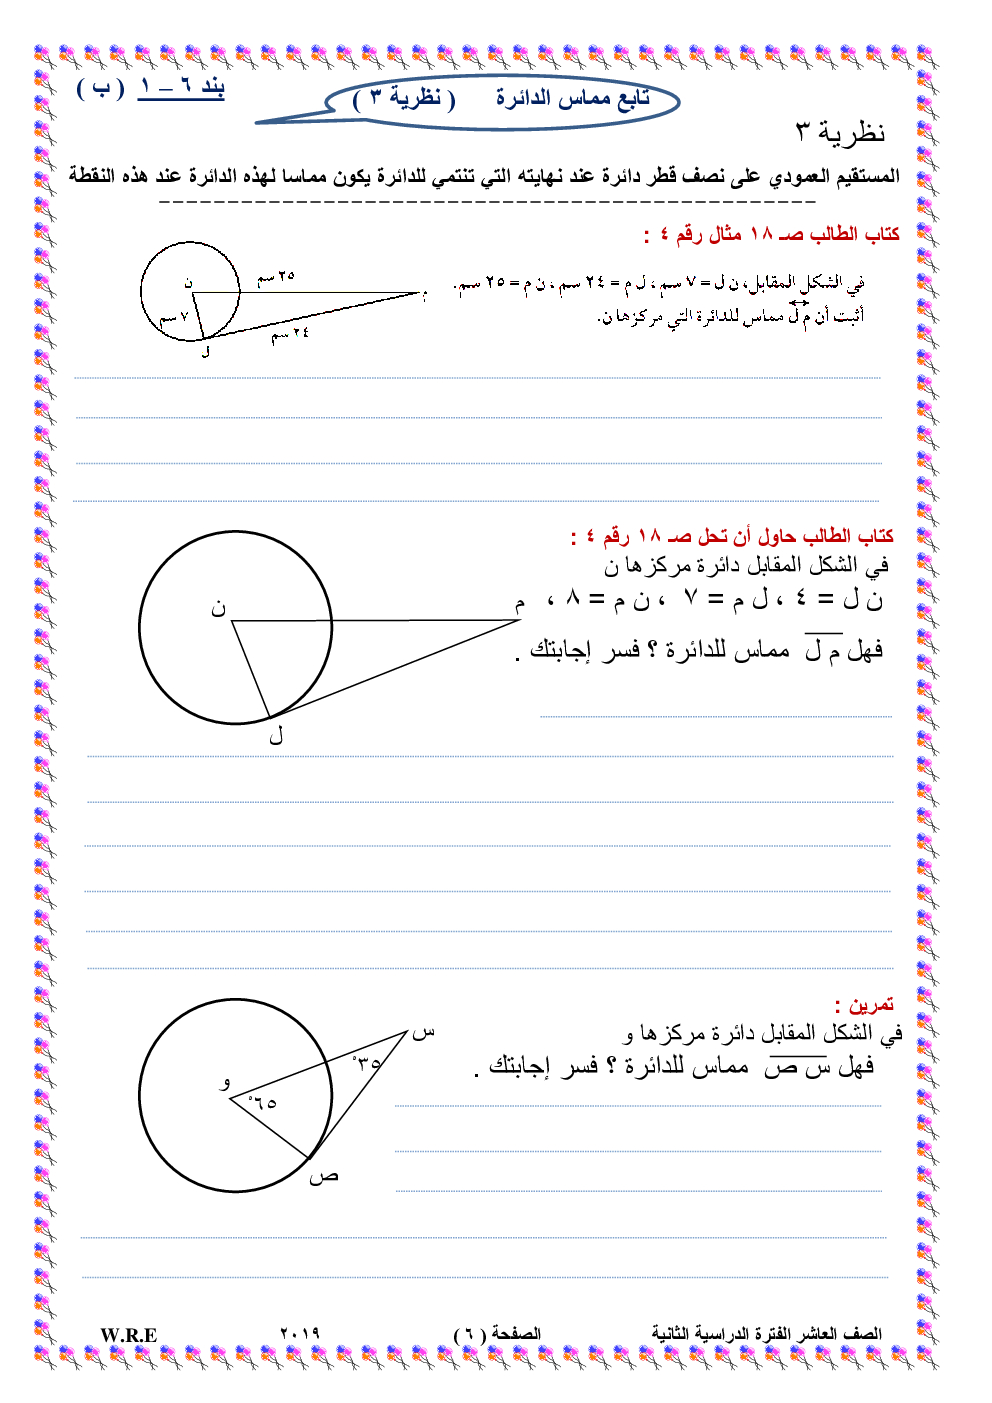 بند ٦ – ١ ( ب )
تابع مماس الدائرة ( نظرية ٣ )
نظرية ٣
المستقيم العمودي على نصف قطر دائرة عند نهايته التي تنتمي للدائرة يكون مماسا لهذه الدائرة عند هذه النقطة
كتاب الطالب صـ ١٨ مثال رقم ٤ :
في الشكل المقابل، ن ل = ٧ سم ، ل م = ٢٤ سم ، ن م = ٢٥ سم.
أثبت أن م ل مماس للدائرة التي مركزها ن.
ن
٢٥ سم
م
٧ سم
٢٤ سم
ل
كتاب الطالب حاول أن تحل صـ ١٨ رقم ٤ :
في الشكل المقابل دائرة مركزها ن
ن ل = ٤ ، ل م = ٧ ، ن م = ٨ ،
فهل م ل مماس للدائرة ؟ فسر إجابتك .
ن
م
ل
تمرين :
في الشكل المقابل دائرة مركزها و
فهل س ص مماس للدائرة ؟ فسر إجابتك .
س
٣٥°
و
٦٥°
ص
الصف العاشر الفترة الدراسية الثانية الصفحة ( ٦ ) ٢٠١٩ W.R.E